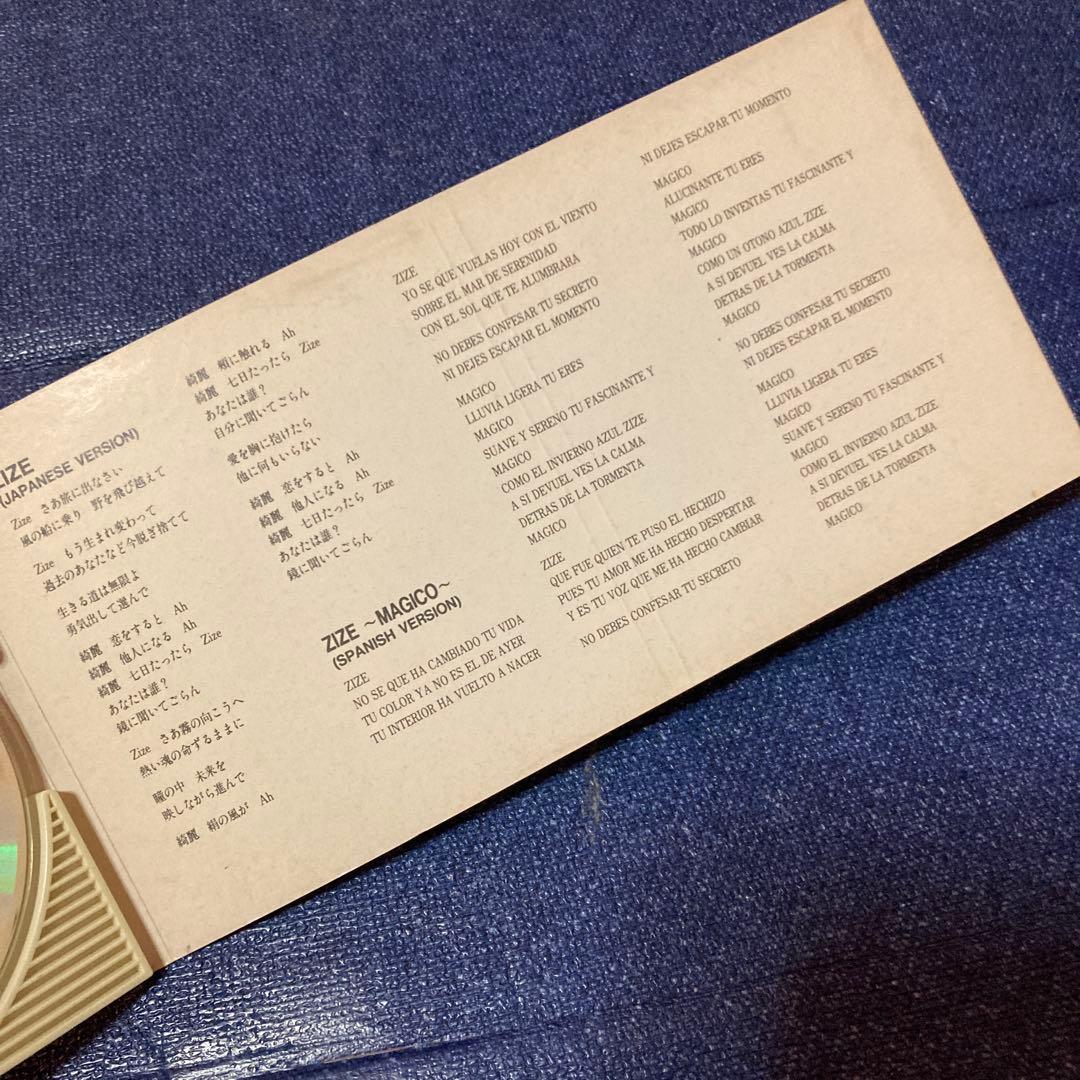 ZIZE
(JAPANESE VERSION)
Zize さあ旅に出なさい
風の船に乗り 野を飛び越えて
Zize もう生まれ変わって
過去のあなたなど今脱ぎ捨てて
生きる道は無限よ
勇気出して選んで
綺麗 恋をすると Ah
綺麗 他人になる Ah
綺麗 七日たったら Zize
あなたは誰?
鏡に聞いてごらん
Zize さあ霧の向こうへ
熱い魂の命ずるままに
瞳の中 未来を
映しながら進んで
綺麗 絹の風が Ah
綺麗 頬に触れる Ah
綺麗 七日たったら Zize
あなたは誰?
自分に聞いてごらん
愛を胸に抱けたら
他に何もいらない
綺麗 恋をすると Ah
綺麗 他人になる Ah
綺麗 七日たったら Zize
あなたは誰?
鏡に聞いてごらん
ZIZE ~MAGICO~
(SPANISH VERSION)
ZIZE
NO SE QUE HA CAMBIADO TU VIDA
TU COLOR YA NO ES EL DE AYER
TU INTERIOR HA VUELTO A NACER
ZIZE
YO SE QUE VUELAS HOY CON EL VIENTO
SOBRE EL MAR DE SERENIDAD
CON EL SOL QUE TE ALUMBRARA
NO DEBES CONFESAR TU SECRETO
NI DEJES ESCAPAR EL MOMENTO
MAGICO
LLUVIA LIGERA TU ERES
MAGICO
SUAVE Y SERENO TU FASCINANTE Y
MAGICO
COMO EL INVIERNO AZUL ZIZE
A SI DEVUEL VES LA CALMA
DETRAS DE LA TORMENTA
MAGICO
ZIZE
QUE FUE QUIEN TE PUSO EL HECHIZO
PUES TU AMOR ME HA HECHO DESPERTAR
Y ES TU VOZ QUE ME HA HECHO CAMBIAR
NO DEBES CONFESAR TU SECRETO
NI DEJES ESCAPAR TU MOMENTO
MAGICO
ALUCINANTE TU ERES
MAGICO
TODO LO INVENTAS TU FASCINANTE Y
MAGICO
COMO UN OTONO AZUL ZIZE
A SI DEVUEL VES LA CALMA
DETRAS DE LA TORMENTA
MAGICO
NO DEBES CONFESAR TU SECRETO
NI DEJES ESCAPAR EL MOMENTO
MAGICO
LLUVIA LIGERA TU ERES
MAGICO
SUAVE Y SERENO TU FASCINANTE Y
MAGICO
COMO EL INVIERNO AZUL ZIZE
A SI DEVUEL VES LA CALMA
DETRAS DE LA TORMENTA
MAGICO